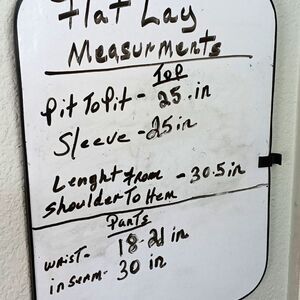 Flat Lay
Measurments
Top
Pit To Pit - 25.in
Sleeve - 25 in
Lenght from - 30.5 in
shoulder To Hem
Pants
WRIST - 18-21 in
inserm - 30 in